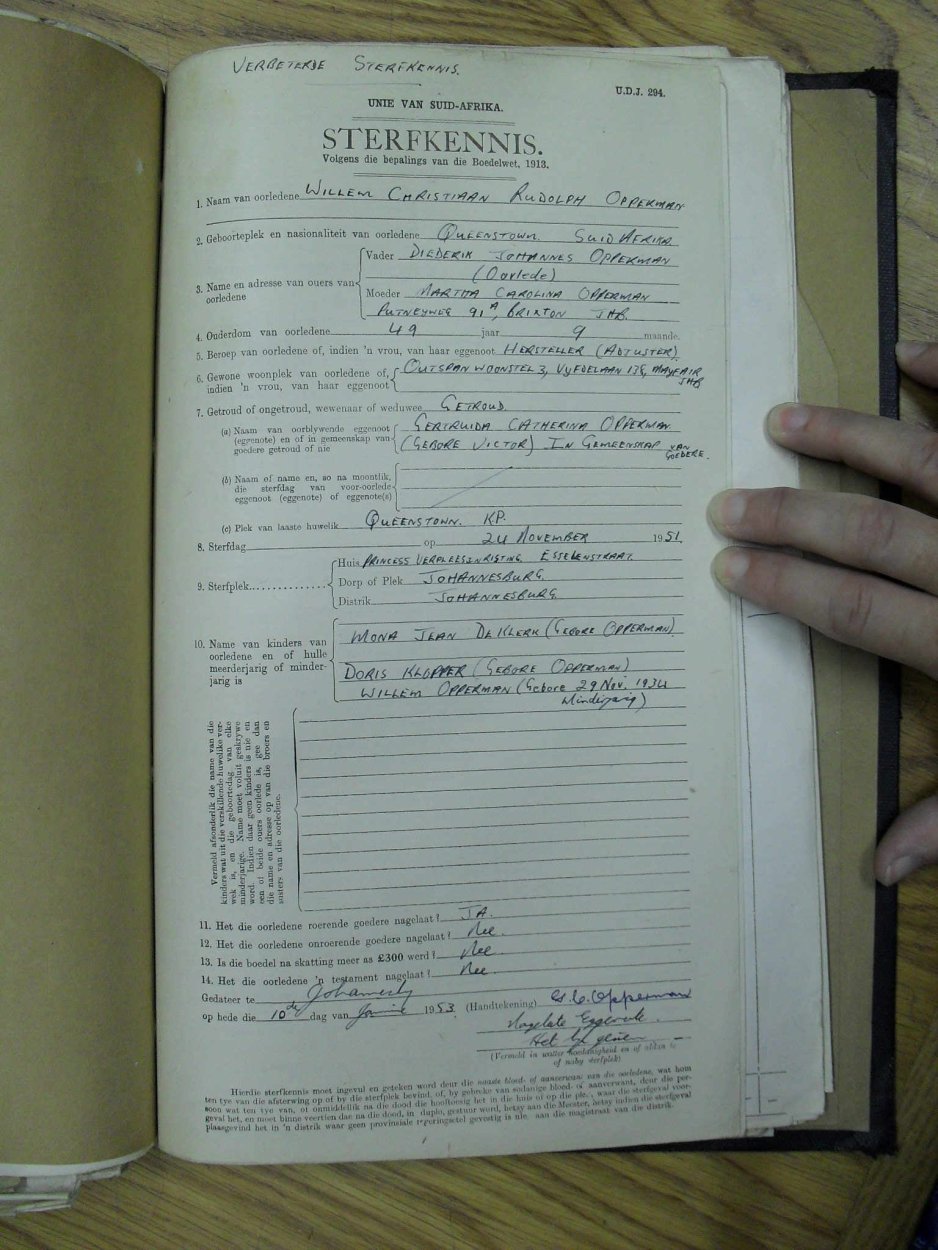 VERBETERDE STERFKENNIS.
U.D.J. 294.
UNIE VAN SUID-AFRIKA.
STERFKENNIS.
Volgens die bepalings van die Boedelwet, 1913.
1. Naam van oorledene WILLEM CHRISTIAAN RUDOLPH OPPERMAN
2. Geboorteplek en nasionaliteit van oorledene QUEENSTOWN. SUID AFRIKA
3. Name en adresse van ouers van oorledene
Vader DIEDERIK JOHANNES OPPERMAN
(Oorlede)
Moeder MARTHA CAROLINA OPPERMAN
PUTNEYWEG 91A, BRIXTON JHB.
4. Ouderdom van oorledene 49 jaar 9 maande.
5. Beroep van oorledene of, indien 'n vrou, van haar eggenoot HERSTELLER (ADJUSTER).
6. Gewone woonplek van oorledene of, indien 'n vrou, van haar eggenoot
OUTSPAN WOONSTEL 3, VYFDELAAN 178, MAYFAIR
JHB
7. Getroud of ongetroud, wewenaar of weduwee GETROUD.
(a) Naam van oorblywende eggenoot (eggenote) en of in gemeenskap van goedere getroud of nie
GERTRUIDA CATHERINA OPPERMAN
(GEBORE VICTOR) IN GEMEENSKAP VAN GOEDERE.
(b) Naam of name en, so na moontlik, die sterfdag van voor-oorlede eggenoot (eggenote) of eggenote(s)
(c) Plek van laaste huwelik QUEENSTOWN. KP.
8. Sterfdag op 24 NOVEMBER 1951.
9. Sterfplek
Huis PRINCESS VERPLEEGINRIGTING ESSELENSTRAAT.
Dorp of Plek JOHANNESBURG.
Distrik JOHANNESBURG
10. Name van kinders van oorledene en of hulle meerderjarig of minderjarig is
MONA JEAN DE KLERK (GEBORE OPPERMAN)
DORIS KLOPPER (GEBORE OPPERMAN)
WILLEM OPPERMAN (Gebore 29 Nov. 1934
Minderjarig)
Vermeld afsonderlik die name van die kinders wat uit die verskillende huwelike verwek is, en die geboortedag van elke minderjarige. Name moet voluit geskrywe word. Indien daar geen kinders is nie en een of beide ouers oorlede is, gee dan die name en adresse op van die broers en susters van die oorledene.
11. Het die oorledene roerende goedere nagelaat? JA.
12. Het die oorledene onroerende goedere nagelaat? Nee.
13. Is die boedel na skatting meer as £300 werd? Nee.
14. Het die oorledene 'n testament nagelaat? Nee.
Gedateer te Johannesburg
op hede die 10de dag van Junie 1953 (Handtekening) G. C. Opperman
Nagelate Eggenote
(Vermeld in watter hoedanigheid en of aldan te of naby sterfplek)
Hierdie sterfkennis moet ingevul en geteken word deur die naaste bloed- of aanverwant van die oorledene, wat hom
ten tye van die afsterwing op of by die sterfplek bevind, of, by gebreke van sodanige bloed- of aanverwant, deur die per-
soon wat ten tye van, of onmiddellik na die dood die hoofbesag het in die huis of op die plek, waar die sterfgeval voor-
geval het, en moet binne veertien dae na die dood, in duplo, gestuur word, hetsy aan die Meester, hetsy indien die sterfgeval
plaasgevind het in 'n distrik waar geen provinsiale regeringsetel gevestig is nie, aan die magistraat van die distrik.